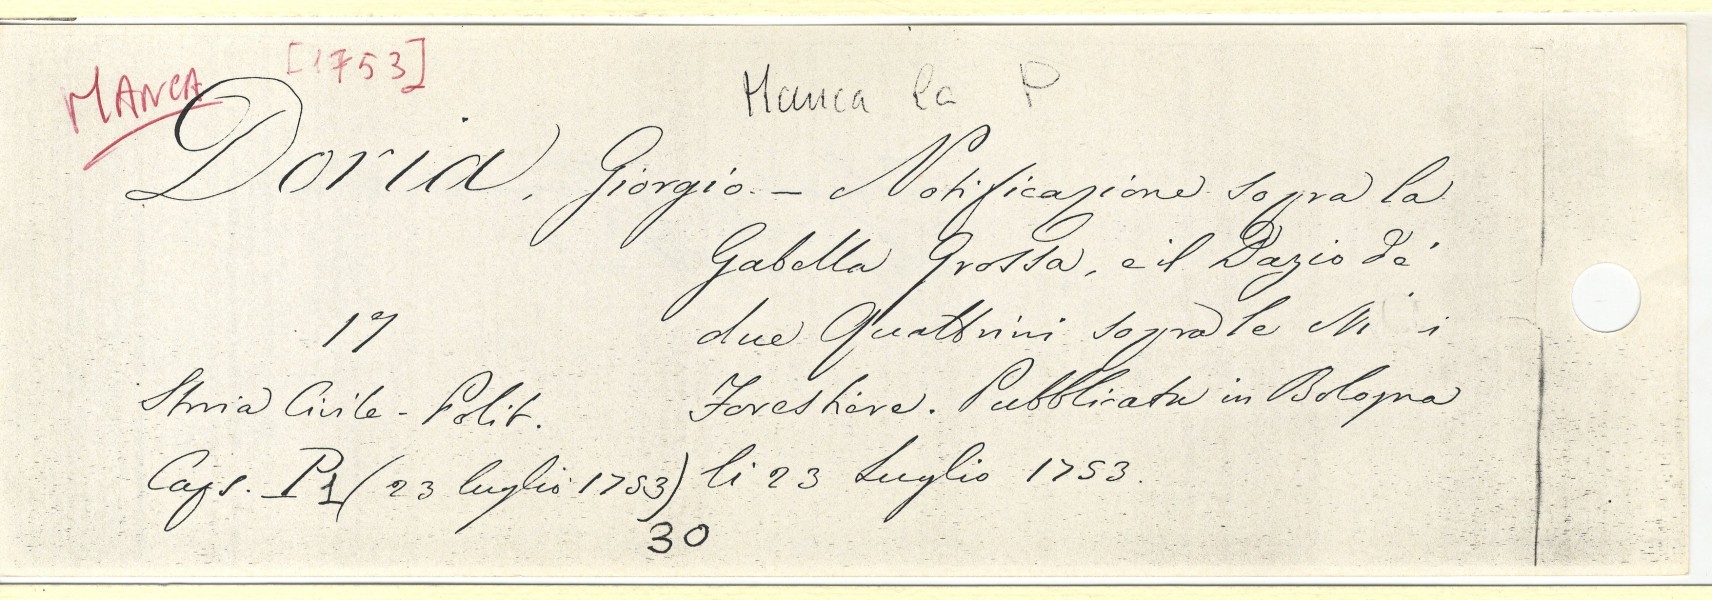 MANCA [1753]
Manca la P
Doria, Giorgio. – Notificazione sopra la
Gabella Grossa, e il Dazio de'
17 due Quattrini sopra le
Storia Civile - Polit. Forestiere. Pubblicata in Bologna
Caps. P1 (23 luglio 1753) li 23 Luglio 1753.
30